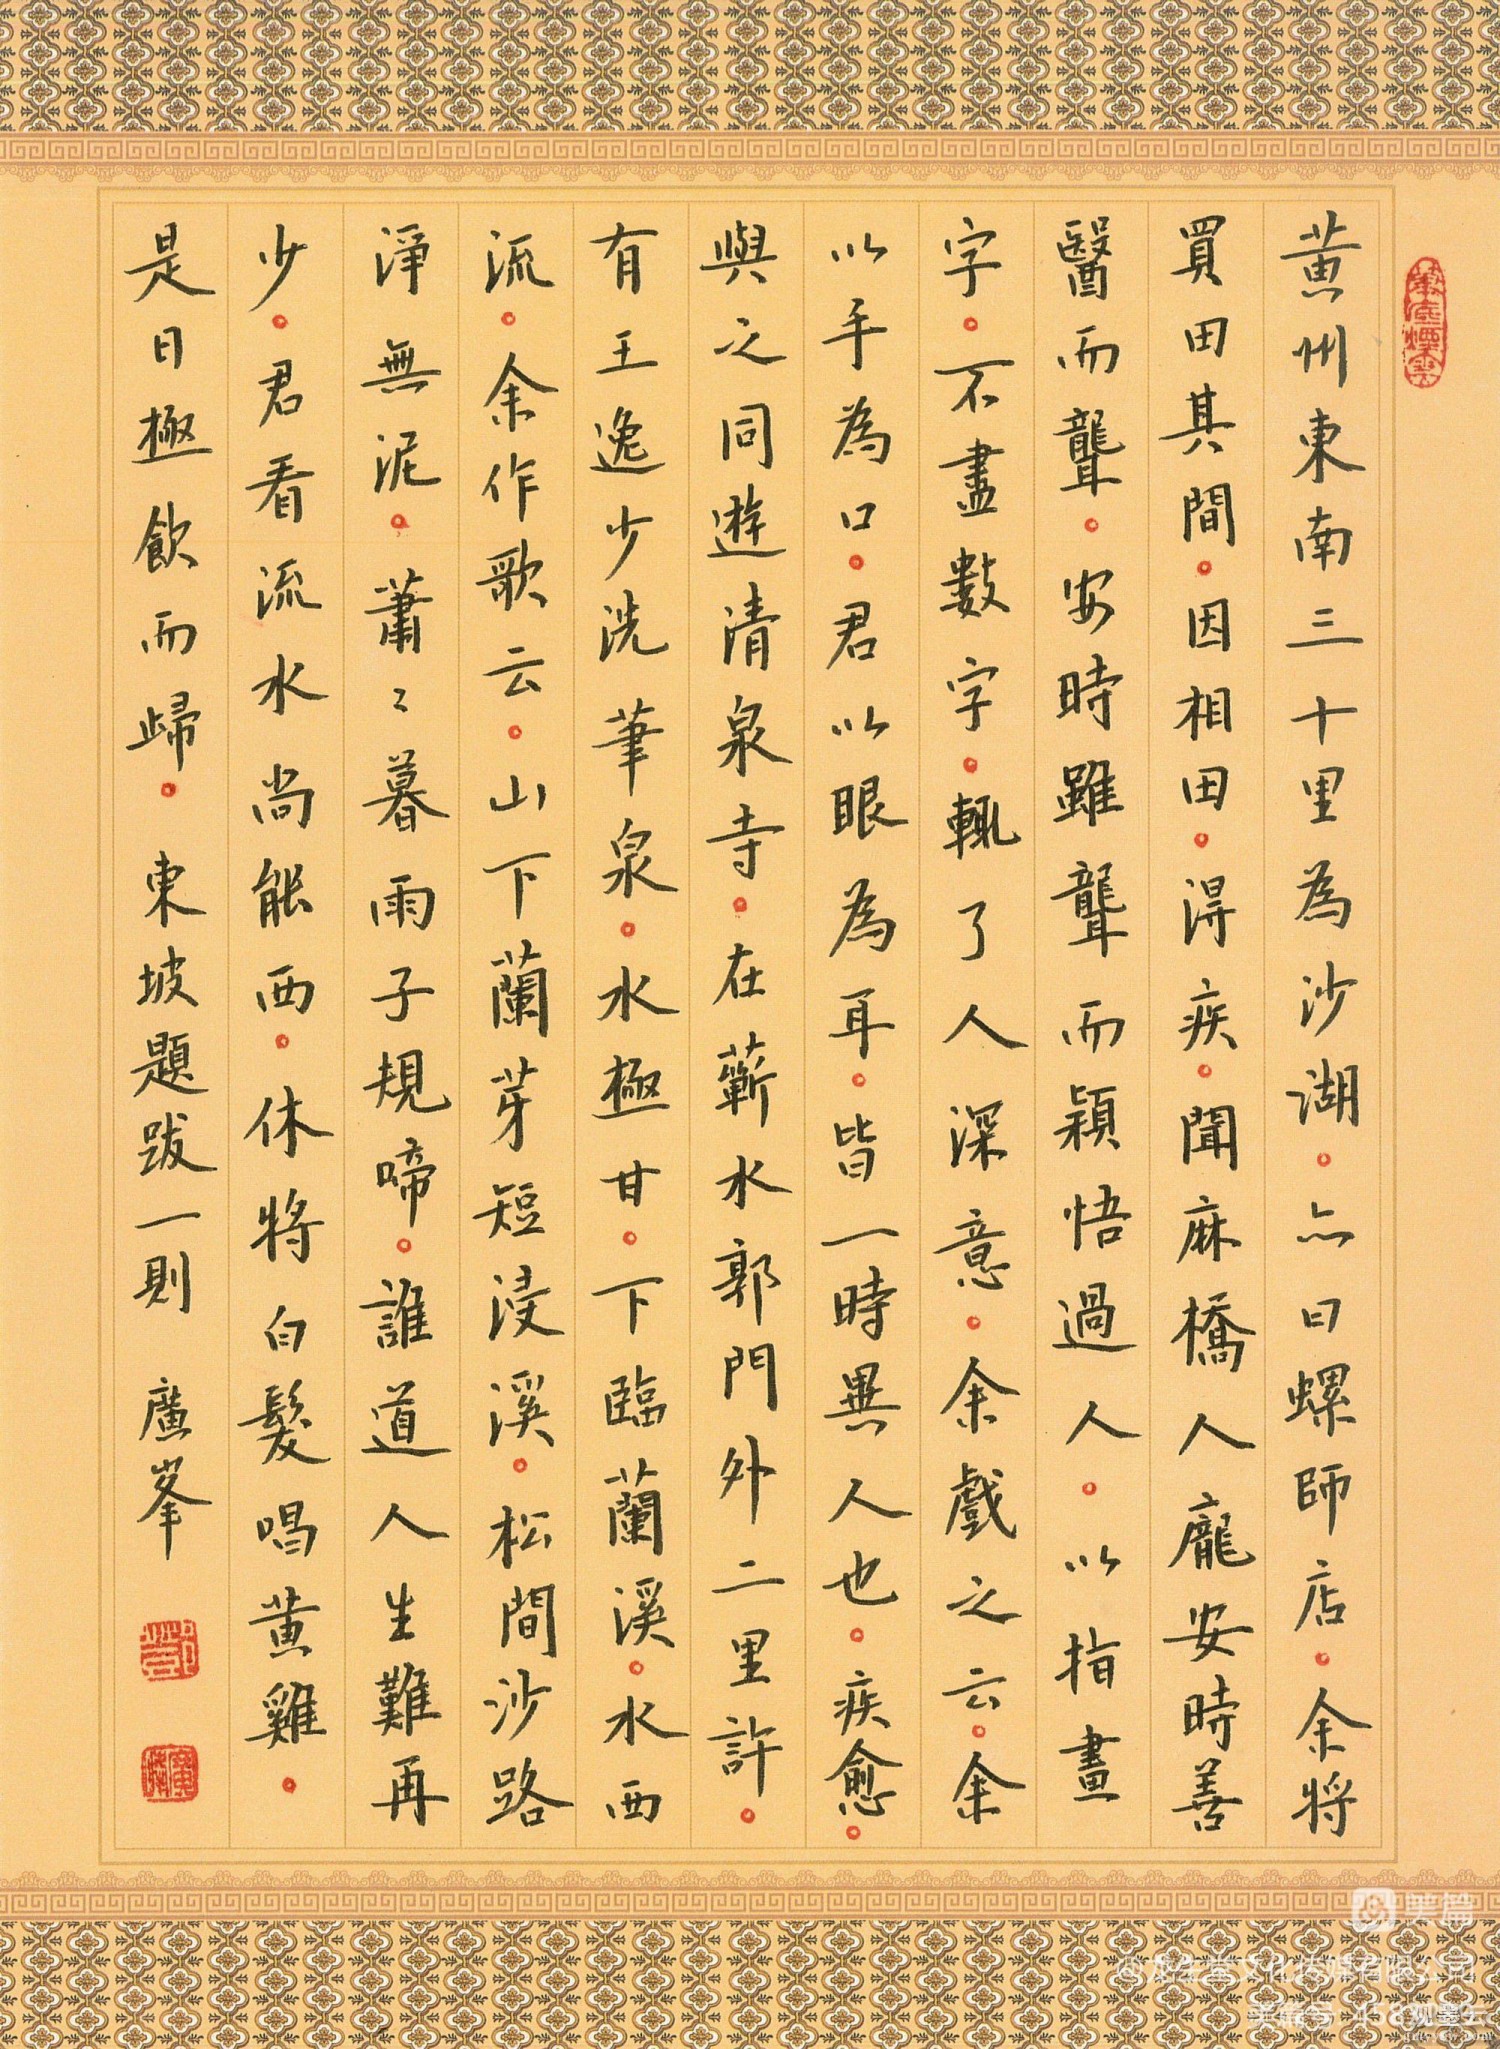 黄州東南三十里為沙湖。亦曰螺師店。余将
買田其間。因相田。得疾。聞麻橋人龐安時善
醫而聾。安時雖聾而穎悟過人。以指畫
字。不盡數字。輒了人深意。余戲之云。余
以手為口。君以眼為耳。皆一時異人也。疾愈。
與之同遊清泉寺。在蘄水郭門外二里許。
有王逸少洗筆泉。水極甘。下臨蘭溪。水西
流。余作歌云。山下蘭芽短浸溪。松間沙路
淨無泥。蕭〻暮雨子規啼。誰道人生難再
少。君看流水尚能西。休将白髮唱黄雞。
是日極飲而歸。東坡題跋一則 廣峯
美篇
文化传媒有限公司
美篇号:458
观墨云